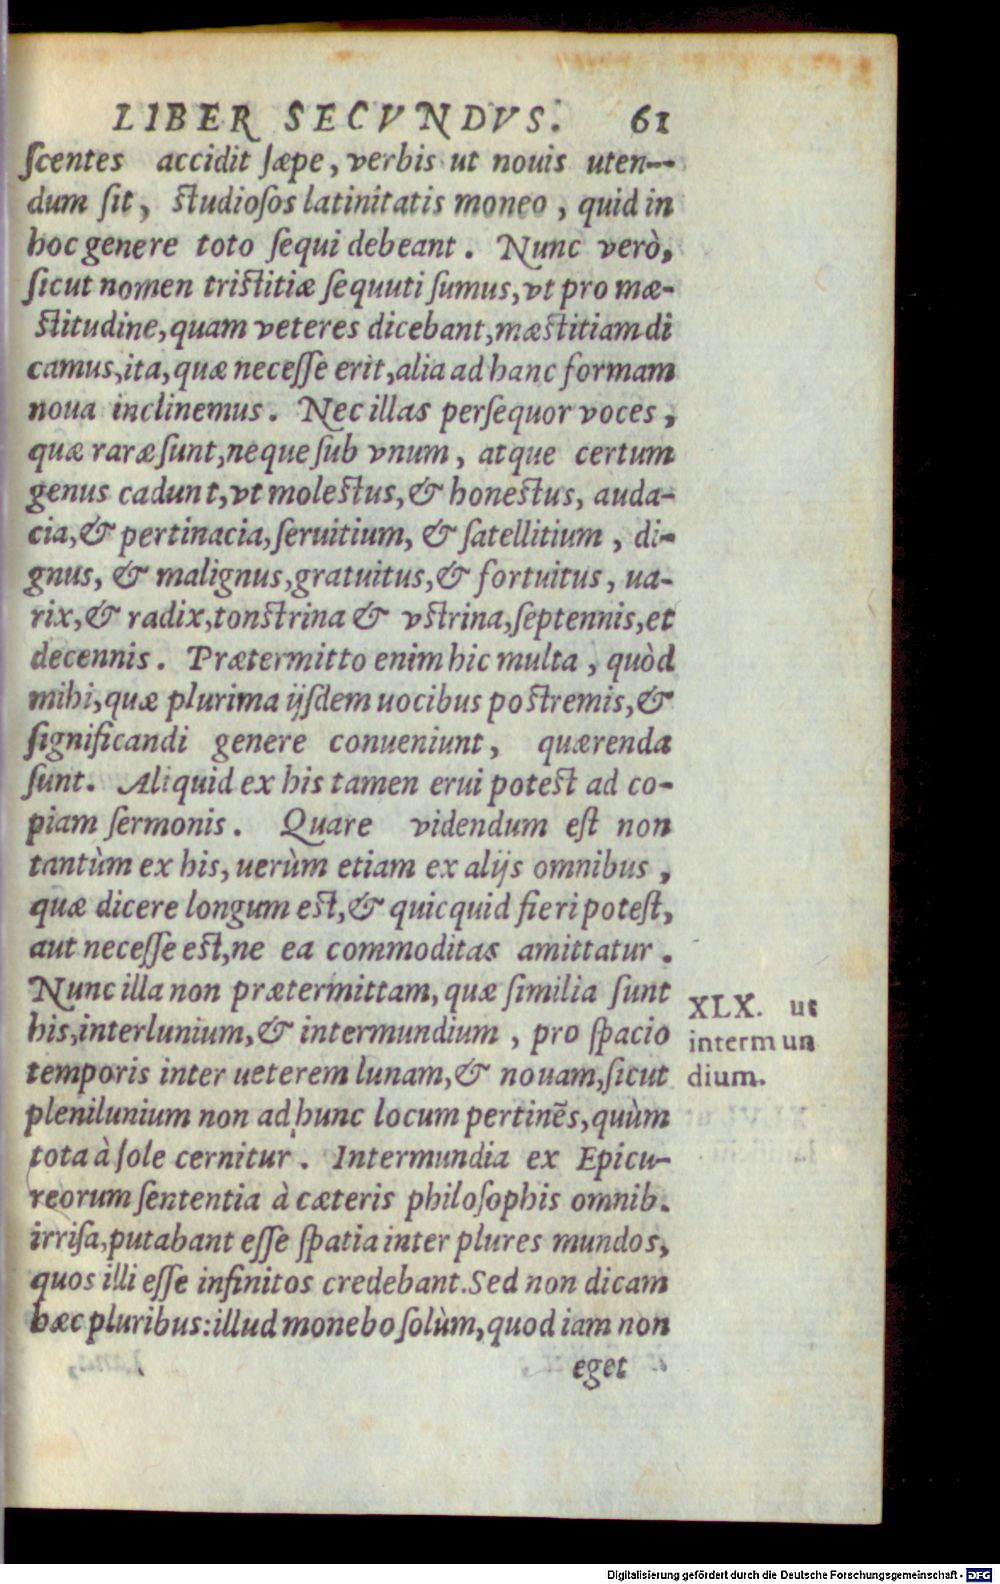 LIBER SECVNDVS. 61
ſcentes accidit ſæpe, verbis ut nouis uten--
dum ſit, ſtudioſos latinitatis moneo, quid in
hoc genere toto ſequi debeant. Nunc verò,
ſicut nomen triſtitiæ ſequuti ſumus, vt pro mæ-
ſtitudine, quam veteres dicebant, mæſtitiam di
camus, ita, quæ neceſſe erit, alia ad hanc formam
noua inclinemus. Nec illas perſequor voces,
quæ raræ ſunt, neque ſub vnum, atque certum
genus cadunt, vt moleſtus, & honeſtus, auda-
cia, & pertinacia, ſeruitium, & ſatellitium, di-
gnus, & malignus, gratuitus, & fortuitus, ua-
rix, & radix, tonſtrina & vſtrina, ſeptennis, et
decennis. Prætermitto enim hic multa, quòd
mihi, quæ plurima ijſdem uocibus poſtremis, &
ſignificandi genere conueniunt, quærenda
ſunt. Aliquid ex his tamen erui poteſt ad co-
piam ſermonis. Quare videndum eſt non
tantùm ex his, uerùm etiam ex alijs omnibus,
quæ dicere longum eſt, & quicquid fieri poteſt,
aut neceſſe eſt, ne ea commoditas amittatur.
Nunc illa non prætermittam, quæ ſimilia ſunt
his, interlunium, & intermundium, pro ſpacio
temporis inter ueterem lunam, & nouam, ſicut
plenilunium non ad hunc locum pertinẽs, quùm
tota à ſole cernitur. Intermundia ex Epicu-
reorum ſententia à cæteris philoſophis omnib.
irriſa, putabant eſſe ſpatia inter plures mundos,
quos illi eſſe infinitos credebant. Sed non dicam
hæc pluribus: illud monebo ſolùm, quod iam non
eget
XLX. ut
interm un
dium.
Digitalisierung gefördert durch die Deutsche Forschungsgemeinschaft - DFG